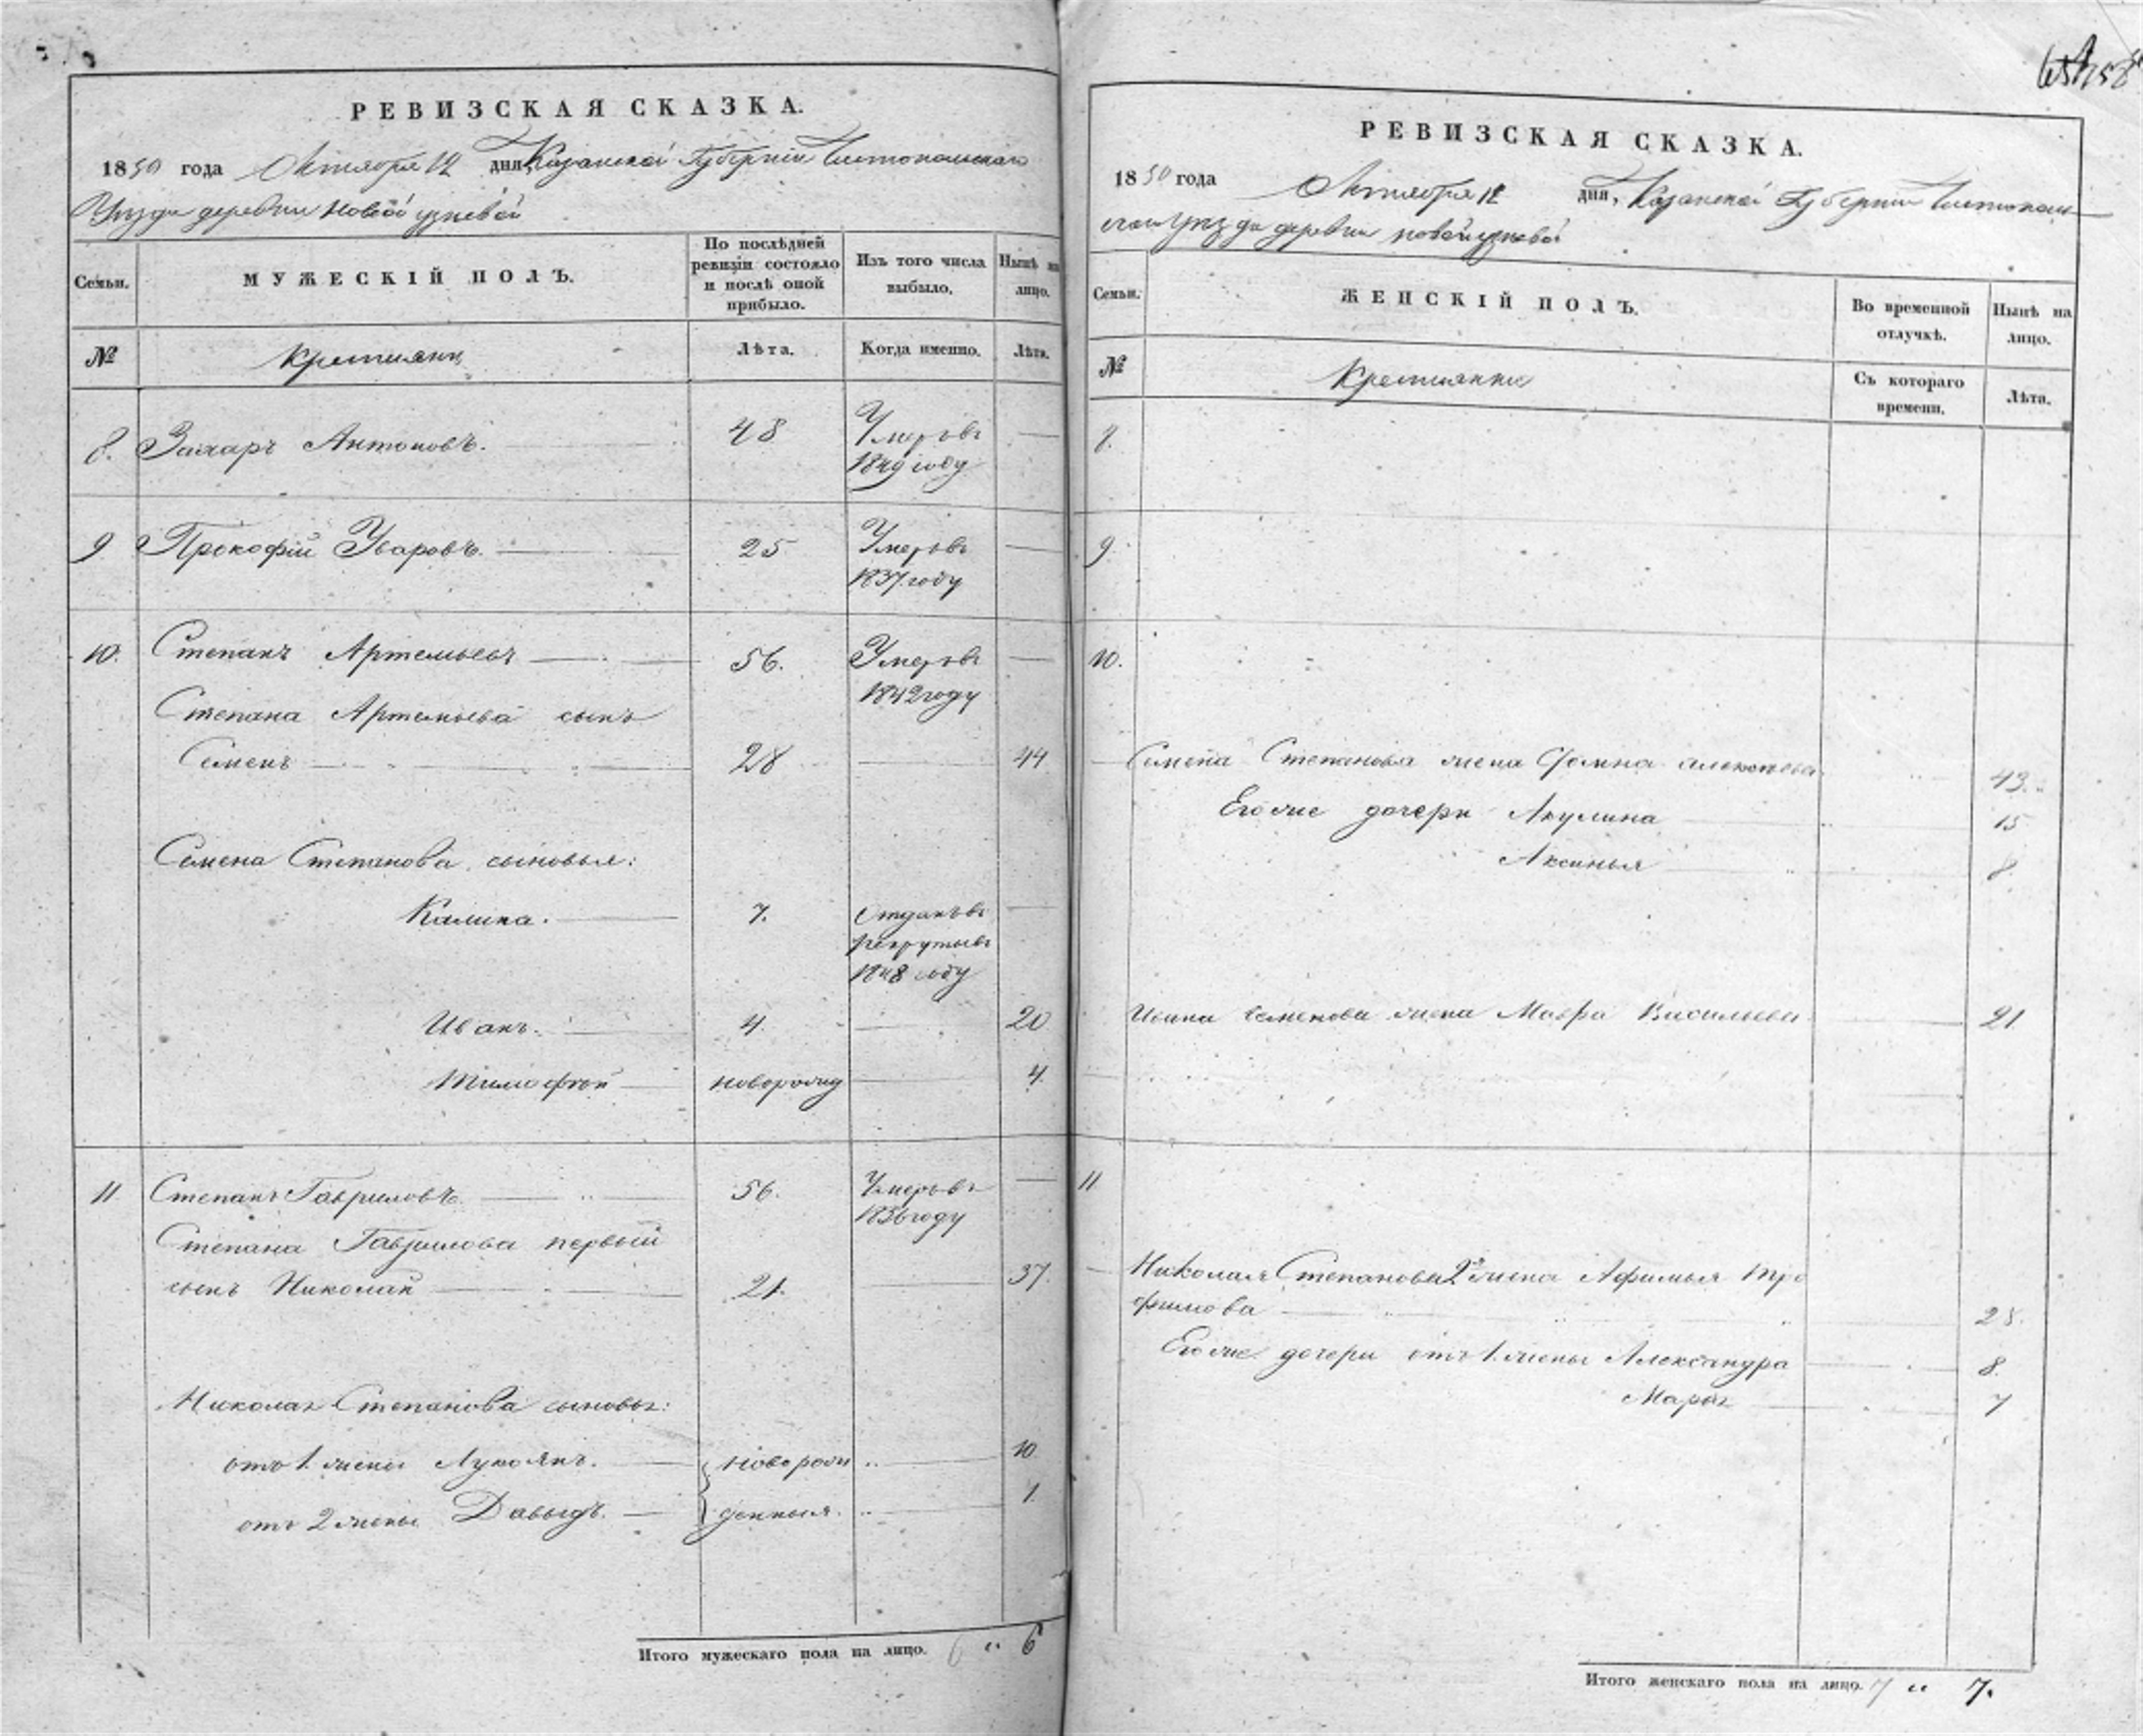 РЕВИЗСКАЯ СКАЗКА.
1850 года Октября 12 дня, Казанской Губерніи Чистопольскаго
Уѣзда деревни Новой
Семьи.
МУЖЕСКІЙ ПОЛЪ.
По послѣдней ревизіи состояло и послѣ оной прибыло.
Изъ того числа выбыло.
Нынѣ на лицо.
№
Крестьяне
Лѣта.
Когда именно.
Лѣта.
8. Захаръ Антоновъ. 48 Умеръ въ —
1849 году
9 Прокофій Уваровъ. — 25 Умеръ въ —
1837 году
10. Степанъ Артемьевъ — 56. Умеръ въ —
1842 году
Степана Артемьева сынъ
Семенъ — 28 — 44
Семена Степанова сыновья:
Калина. — 7. Отданъ въ —
рекруты въ
1848 году
Иванъ. — 4. — 20
Тимофѣй — новорожд — 4.
11 Степанъ Гавриловъ — 56. Умеръ въ —
1836 году
Степана Гаврилова первый
сынъ Николай — 21. — 37.
Николая Степанова сыновья:
отъ 1. жены Лукоянъ. — новорож — 10
отъ 2 жены Давыдъ. — денныя. — 1.
Итого мужескаго пола на лицо. 6 " 6
РЕВИЗСКАЯ СКАЗКА.
1850 года Октября 12 дня, Казанской Губерніи Чистополь—
скаго Уѣзда деревни новой
Семьи.
ЖЕНСКІЙ ПОЛЪ.
Во временной отлучкѣ.
Нынѣ на лицо.
№
Крестьянки
Съ котораго времени.
Лѣта.
8.
9.
10.
Семена Степанова жена Фомна Алексѣева 43.
Его же дочери Акулина 15
Аксинья 8.
Ивана Семенова жена Мавра Васильева — 21
11
Николая Степанова 2я жена Афимья Тро
фимова — 28.
Его же дочери отъ 1. жены Александра — 8.
Марья — 7
Итого женскаго пола на лицо. 7 " 7.